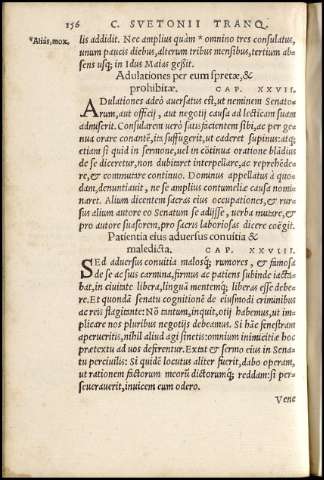 156 C. SVETONII TRANQ.
*Aliâs, mox.
lis addidit. Nec amplius quàm * omnino tres consulatus,
unum paucis diebus, alterum tribus mensibus, tertium ab-
sens usq; in Idus Maias gessit.
Adulationes per eum spretæ, &
prohibitæ. CAP. XXVII.
ADulationes adeò aversatus est, ut neminem Senato-
rum, aut officij, aut negotij causa ad lecticam suam
admiserit. Consularem uerò satisfacientem sibi, ac per ge-
nua orare conantē, ita suffugerit, ut caderet supinus: atq;
etiam si quid in sermone, uel in cōtinua oratione blādius
de se diceretur, non dubitaret interpellare, ac reprehēde-
re, & commutare continuo. Dominus appellatus à quo-
dam, denuntiauit, ne se amplius contumeliæ causa nomi-
naret. Alium dicentem sacras eius occupationes, & rur-
sus alium autore eo Senatum se adijsse, uerba mutare, &
pro autore suasorem, pro sacris laboriosas dicere coëgit.
Patientia eius aduersus conuitia &
maledicta. CAP. XXVIII.
SEd aduersus conuitia malosq; rumores, & famosa
de se ac suis carmina, firmus ac patiens subinde iacta-
bat, in ciuitate libera, linguā mentemq; liberas esse debe-
re. Et quondā senatu cognitionē de eiusmodi criminibus
ac reis flagitante: Nō tantum, inquit, otij habemus, ut im-
plicare nos pluribus negotijs debeamus. Si hāc fenestram
aperueritis, nihil aliud agi sinetis: omnium inimicitiæ hoc
prætextu ad uos deferentur. Extat & sermo eius in Sena-
tu perciuilis: Si quidē locutus aliter fuerit, dabo operam,
ut rationem factorum meorū dictorumq; reddam: si per-
seuerauerit, inuicem eum odero.
Vene